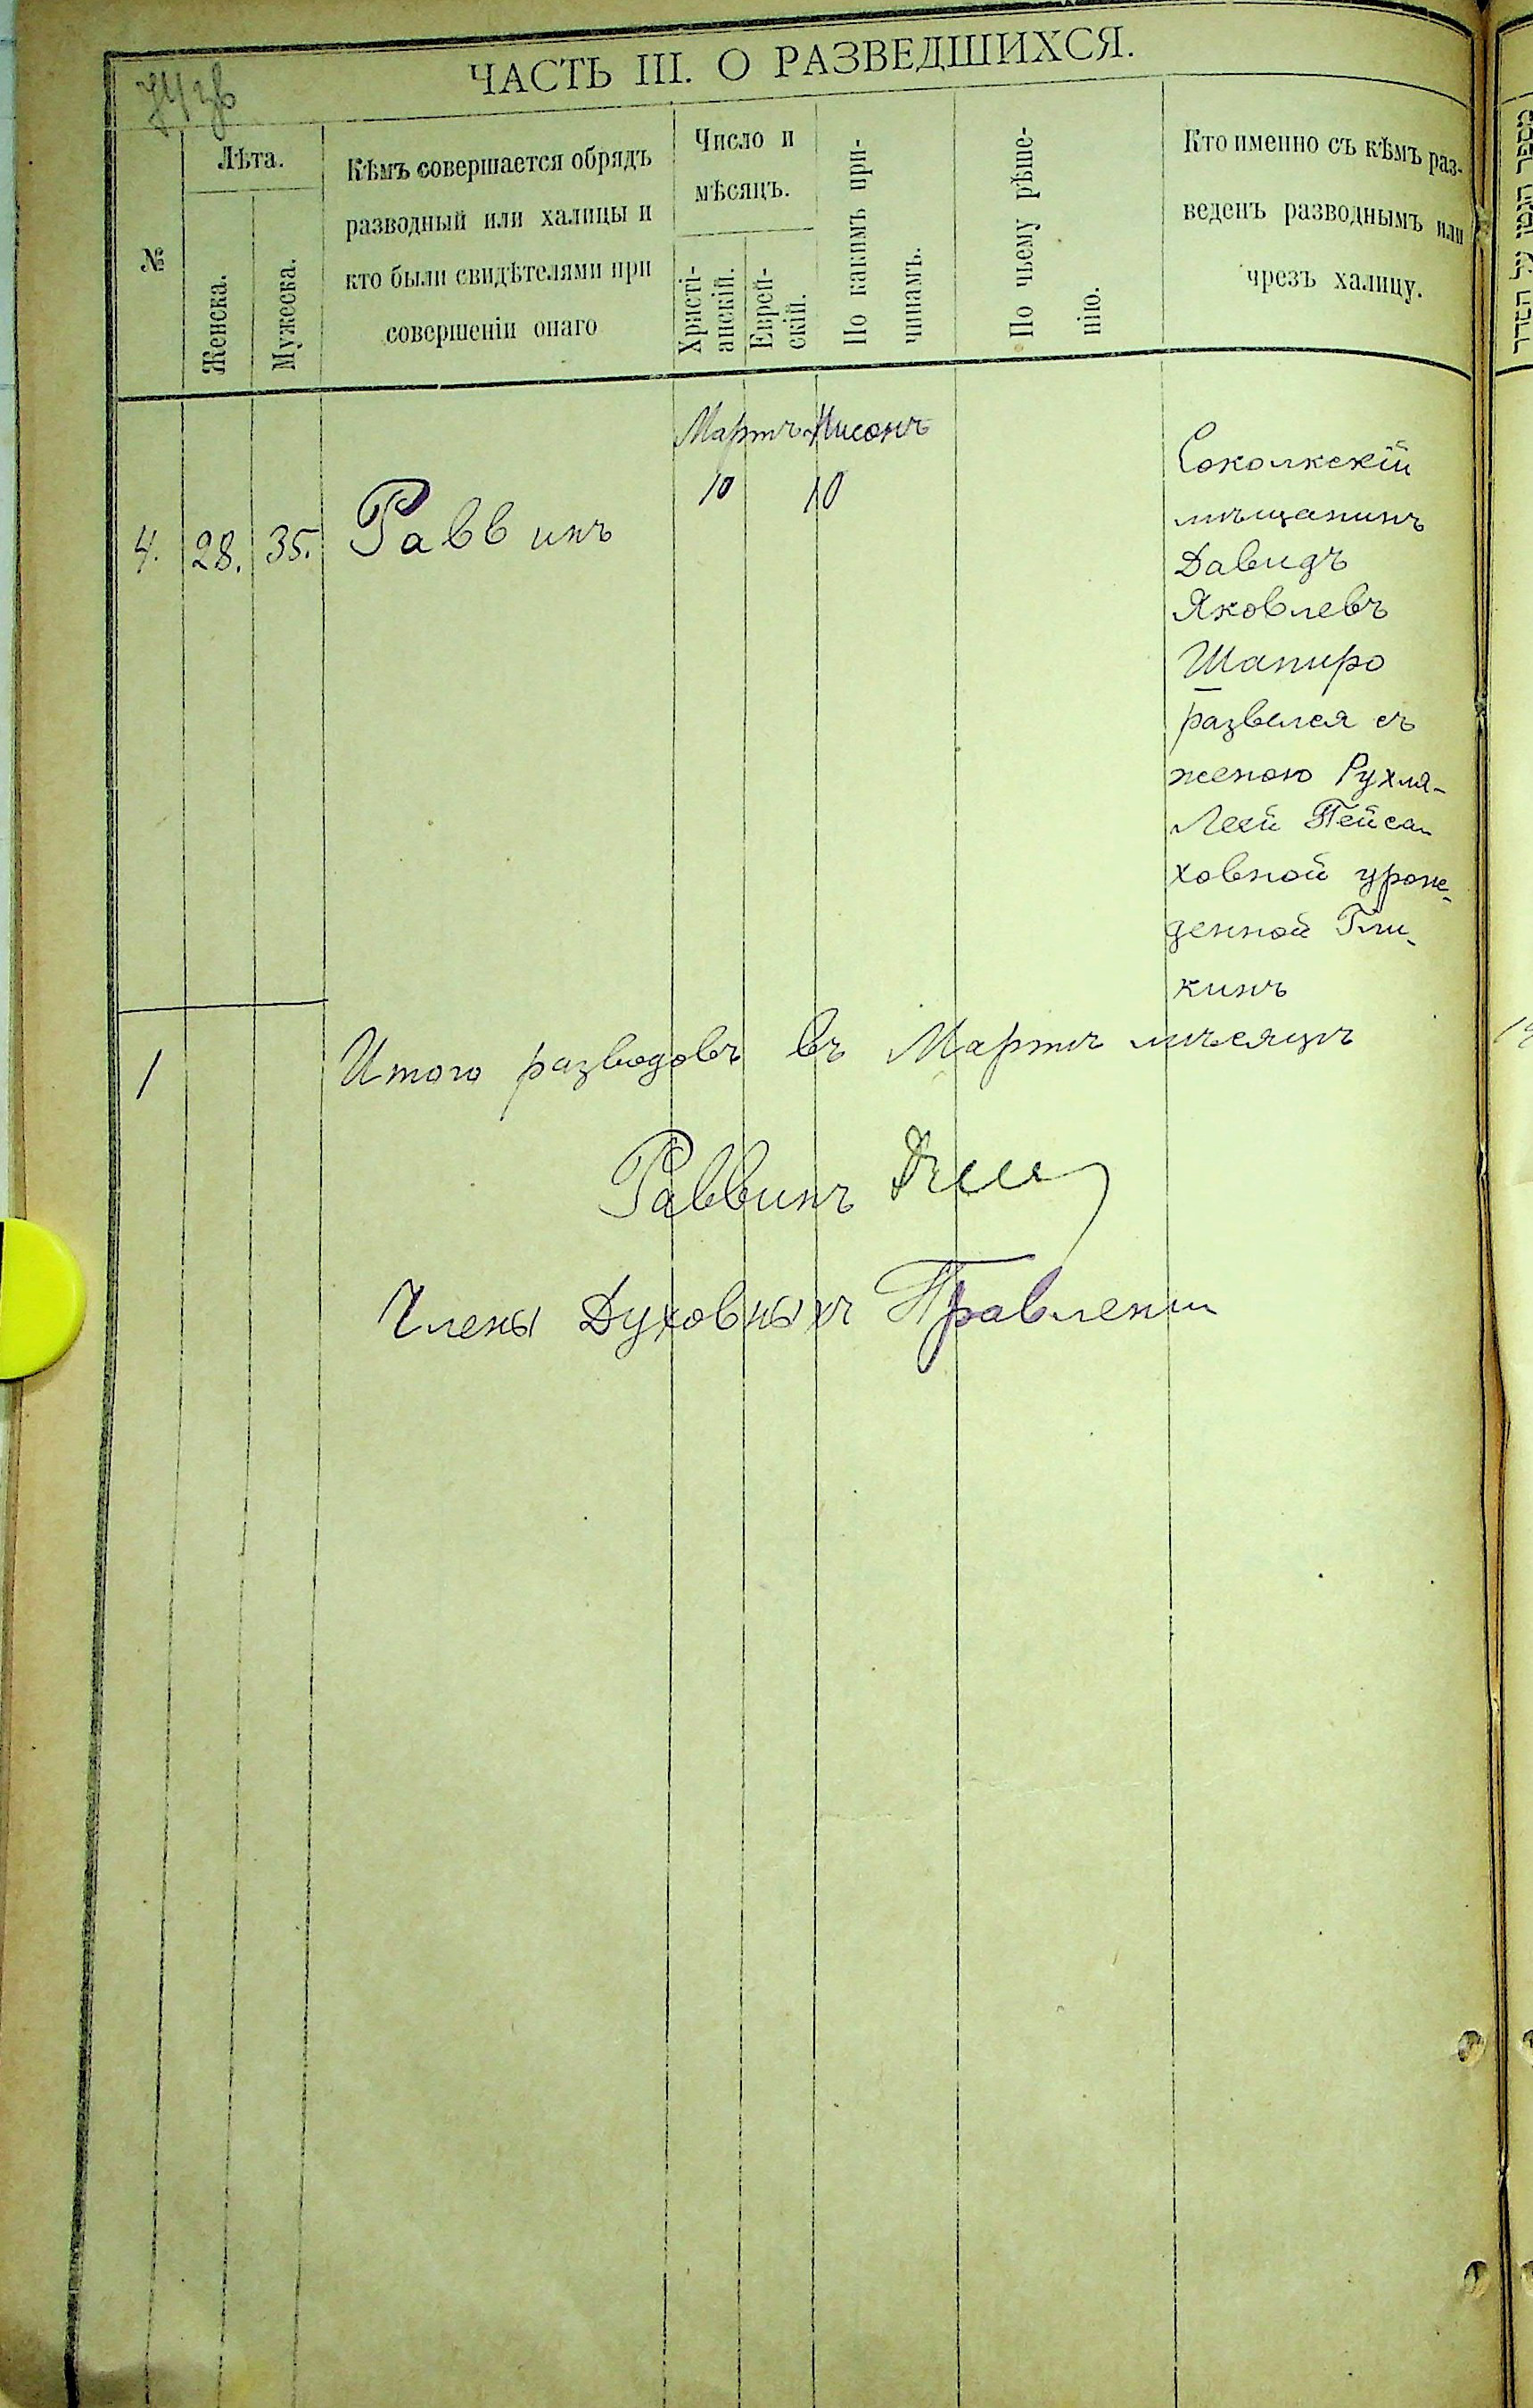 ЧАСТЬ III. О РАЗВЕДШИХСЯ.
№
Лѣта.
Женска.
Мужеска.
Кѣмъ совершается обрядъ
разводный или халицы и
кто были свидѣтелями при
совершеніи онаго
Число и
мѣсяцъ.
Христі-
анскій.
Еврей-
скій.
По какимъ при-
чинамъ.
По чьему рѣше-
нію.
Кто именно съ кѣмъ раз-
веденъ разводнымъ или
чрезъ халицу.
Мартъ Нисонъ
4. 28. 35. Раввинъ 10 10
Соколкскій
мѣщанинъ
Давидъ
Яковлевъ
Шапиро
развелся съ
женою Рухля-
Леей Пейса-
ховной урож-
денной Гли-
кинъ
1 Итого разводовъ въ Мартѣ мѣсяцѣ
Раввинъ
Члены Духовныхъ Правленій